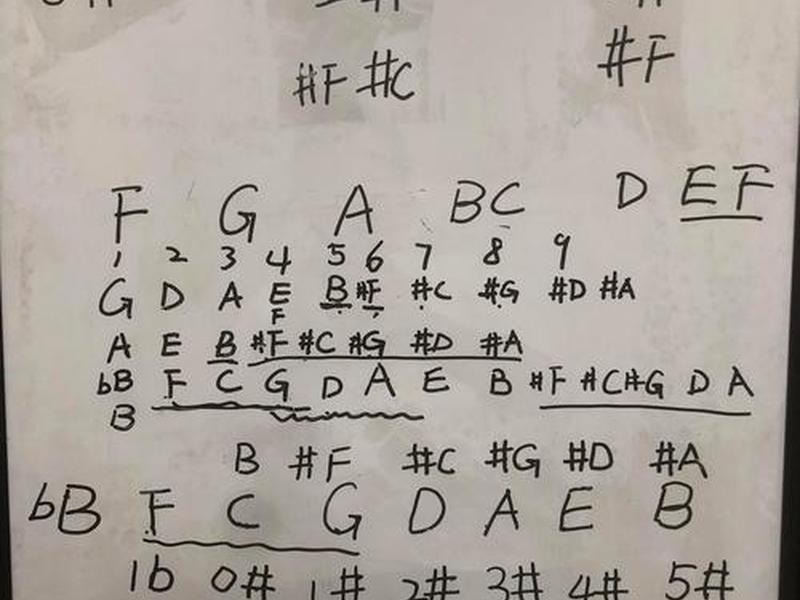 #F #C #F
F G A BC D EF
1 2 3 4 5 6 7 8 9
G D A E B #F #C #G #D #A
F
A E B #F #C #G #D #A
bB F C G D A E B #F #C #G D A
B
B #F #C #G #D #A
bB F C G D A E B
1b 0# 1# 2# 3# 4# 5#